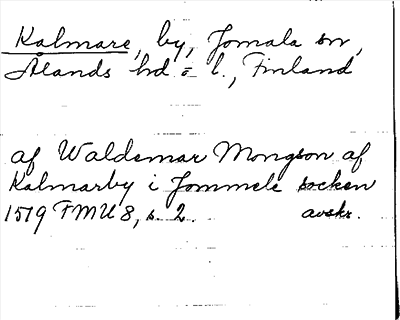 Kalmare, by, Jomala sn,
Ålands hd o l., Finland
af Waldemar Mongson af
Kalmarby i Jommele socken
1519 FMU 8, s. 2. avskr.